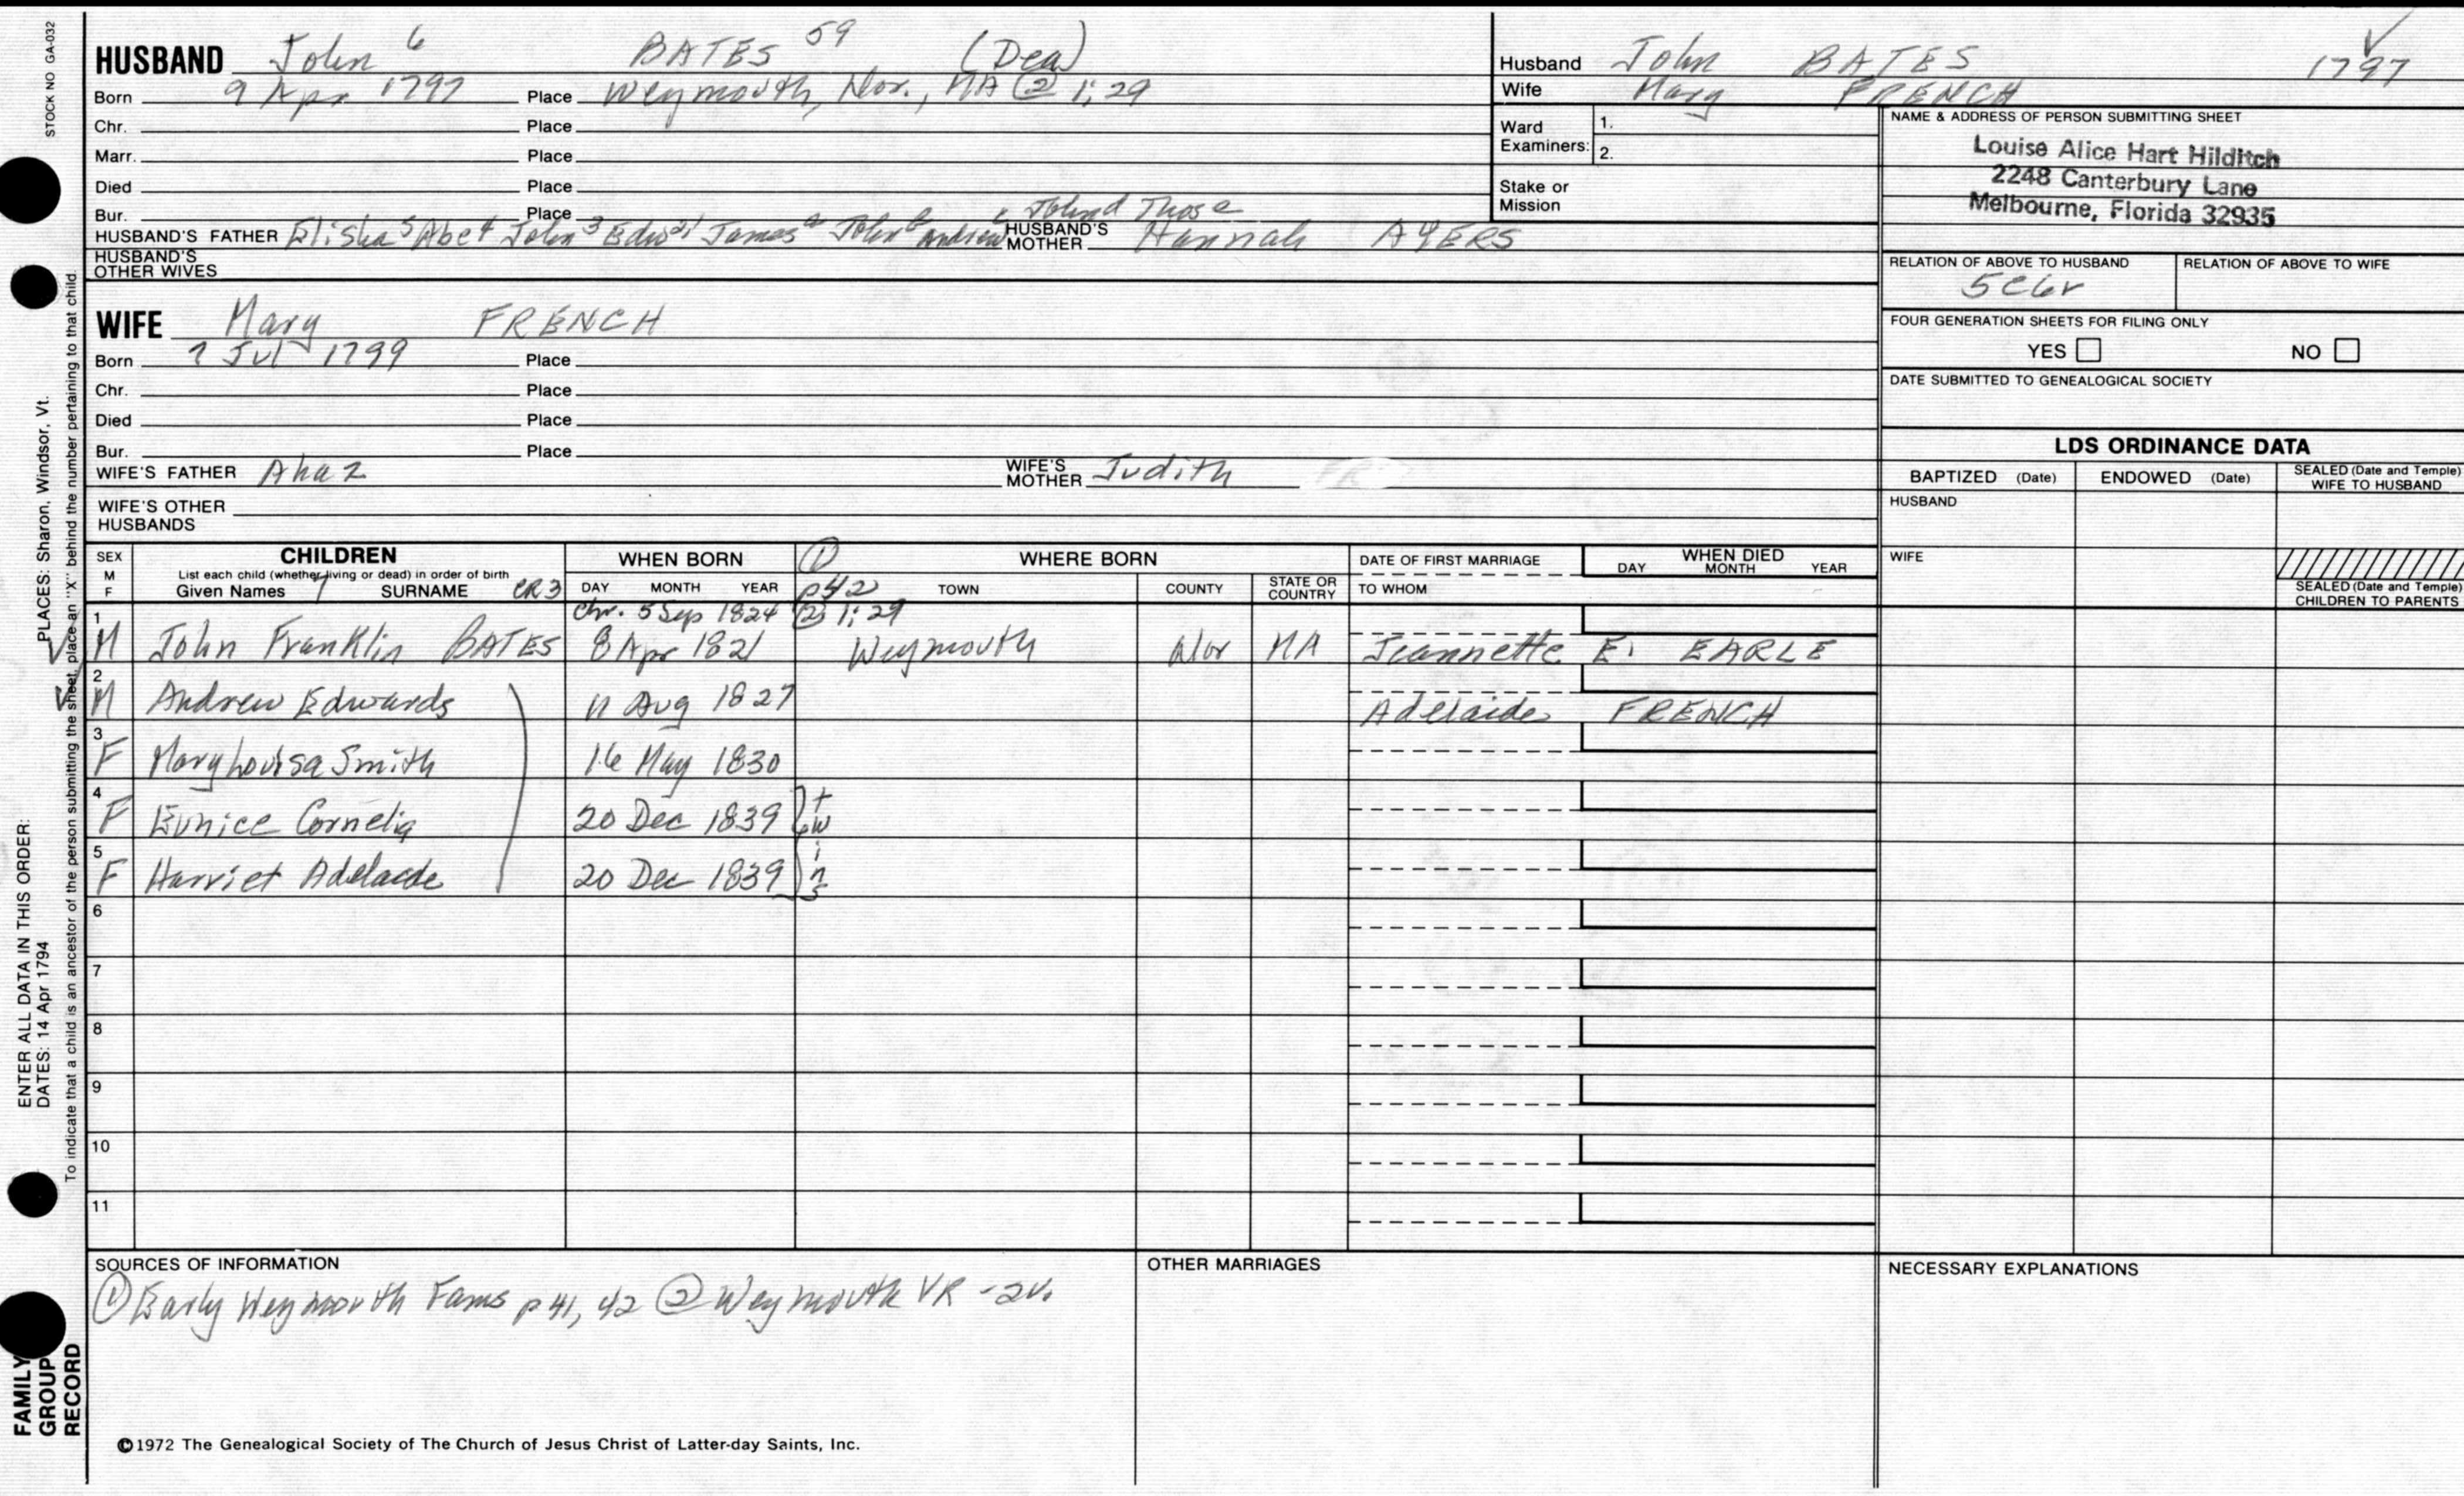 STOCK NO GA-032
HUSBAND John 6 BATES 59 (Dea)
Born 9 Apr 1797 Place Weymouth, Nor., MA ② 1:29
Chr. Place
Marr. Place
Died Place
Bur. Place
c John d Thos e
HUSBAND'S FATHER Elisha 5 Abe 4 John 3 Edw 2, 1 James a John b Andrew HUSBAND'S MOTHER Hannah AYERS
HUSBAND'S OTHER WIVES
Husband John BATES 1797
Wife Mary FRENCH
Ward Examiners: 1.
2.
Stake or Mission
NAME & ADDRESS OF PERSON SUBMITTING SHEET
Louise Alice Hart Hilditch
2248 Canterbury Lane
Melbourne, Florida 32935
RELATION OF ABOVE TO HUSBAND RELATION OF ABOVE TO WIFE
5C6r
FOUR GENERATION SHEETS FOR FILING ONLY
YES NO
DATE SUBMITTED TO GENEALOGICAL SOCIETY
WIFE Mary FRENCH
Born 7 Jul 1799 Place
Chr. Place
Died Place
Bur. Place
WIFE'S FATHER Ahaz WIFE'S MOTHER Judith
WIFE'S OTHER HUSBANDS
LDS ORDINANCE DATA
BAPTIZED (Date) ENDOWED (Date) SEALED (Date and Temple) WIFE TO HUSBAND
HUSBAND
WIFE
SEALED (Date and Temple) CHILDREN TO PARENTS
SEX M F
CHILDREN
List each child (whether living or dead) in order of birth
Given Names 7 SURNAME CR3
WHEN BORN
DAY MONTH YEAR
① p42
WHERE BORN
TOWN COUNTY STATE OR COUNTRY
DATE OF FIRST MARRIAGE
TO WHOM
WHEN DIED
DAY MONTH YEAR
chr. 5 Sep 1824 ② 1:29
1 M John Franklin BATES 8 Apr 1821 Weymouth Nor MA Jeannette E. EARLE
2 M Andrew Edwards 11 Aug 1827 Adelaide FRENCH
3 F Mary Louisa Smith 16 May 1830
4 F Eunice Cornelia 20 Dec 1839
5 F Harriet Adelaide 20 Dec 1839
twins
6
7
8
9
10
11
SOURCES OF INFORMATION
① Early Weymouth Fams p 41, 42 ② Weymouth VR - 2v.
OTHER MARRIAGES
NECESSARY EXPLANATIONS
©1972 The Genealogical Society of The Church of Jesus Christ of Latter-day Saints, Inc.
ENTER ALL DATA IN THIS ORDER:
DATES: 14 Apr 1794 PLACES: Sharon, Windsor, Vt.
To indicate that a child is an ancestor of the person submitting the sheet, place an "X" behind the number pertaining to that child.
FAMILY GROUP RECORD